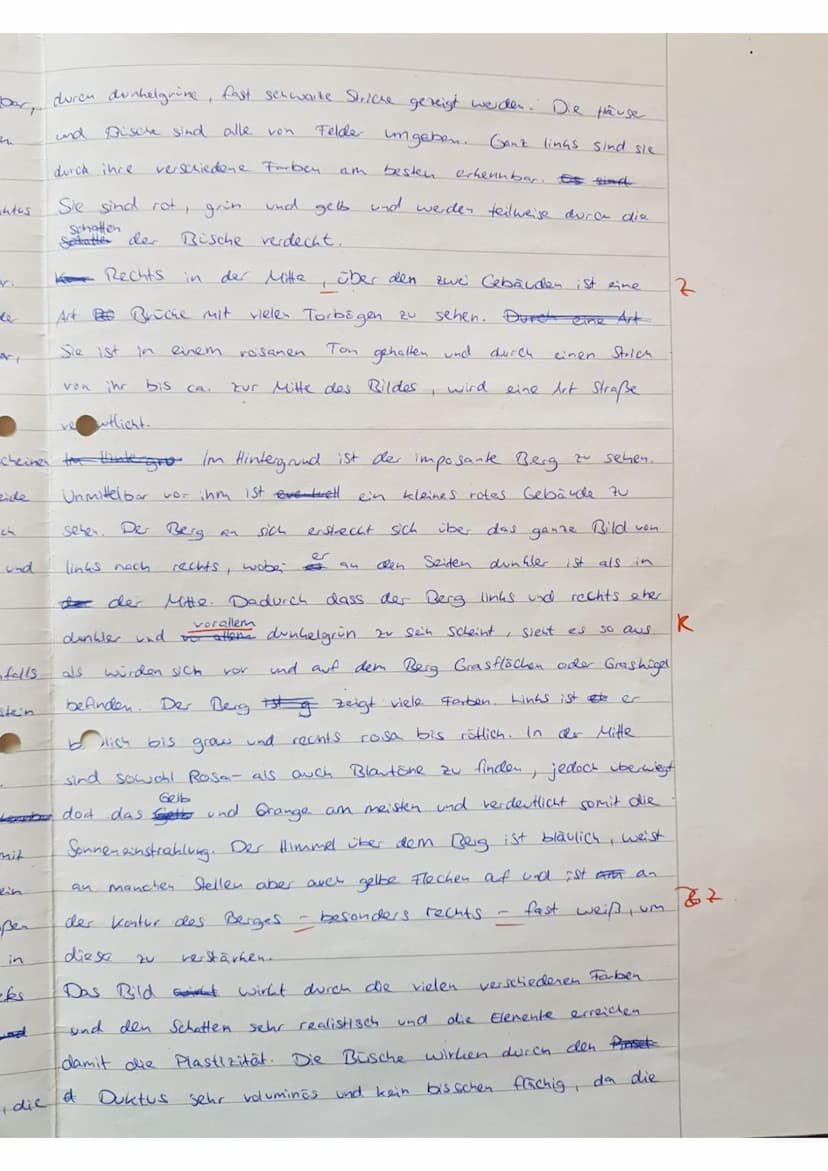 bar, durch dunkelgrüne, fast schwarze Striche gezeigt werden. Die Häuse
und Büsche sind alle von Felder umgeben. Ganz links sind sie
durch ihre verschiedene Farben am besten erkennbar. Es sind
Sie sind rot, grün und gelb und werden teilweise durch die
Schatten
Schatten der Büsche verdeckt.
Rechts in der Mitte, über den zwei Gebäuden ist eine Z
Art Brücke mit vielen Torbögen zu sehen. Durch eine Art
Sie ist in einem rosanen Ton gehalten und durch einen Strich
von ihr bis ca. zur Mitte des Bildes, wird eine Art Straße
ve utlicht.
scheinen Im Hintergro Im Hintergrund ist der imposante Berg zu sehen.
Unmittelbar vor ihm ist eventuell ein kleines rotes Gebäude zu
sehen. Der Berg an sich erstreckt sich über das ganze Bild von
er
und links nach rechts, wobei an den Seiten dunkler ist als in
der Mitte. Dadurch dass der Berg links und rechts eher
vorallem
dunkler und vor allem dunkelgrün zu sein scheint, sieht es so aus K
nfalls als würden sich vor und auf dem Berg Grasflächen oder Grashügel
stein befinden. Der Berg ist g zeigt viele Farben. Links ist er
b lich bis grau und rechts rosa bis rötlich. In der Mitte
sind sowohl Rosa- als auch Blautöne zu finden, jedoch überwiegt
Gelb
dort das Gelb und Orange am meisten und verdeutlicht somit die
mit Sonneneinstrahlung. Der Himmel über dem Berg ist bläulich, weist
ein an manchen Stellen aber auch gelbe Flechen auf und ist an
ßen der Kontur des Berges - besonders rechts - fast weiß, um Z
in diese zu verstärken.
Das Bild wirkt durch die vielen verschiedenen Farben
und und den Schatten sehr realistisch und die Elemente erreichen
damit die Plastizität. Die Büsche wirken durch den Pinsel
, die d Duktus sehr voluminös und kein bisschen flächig, da die